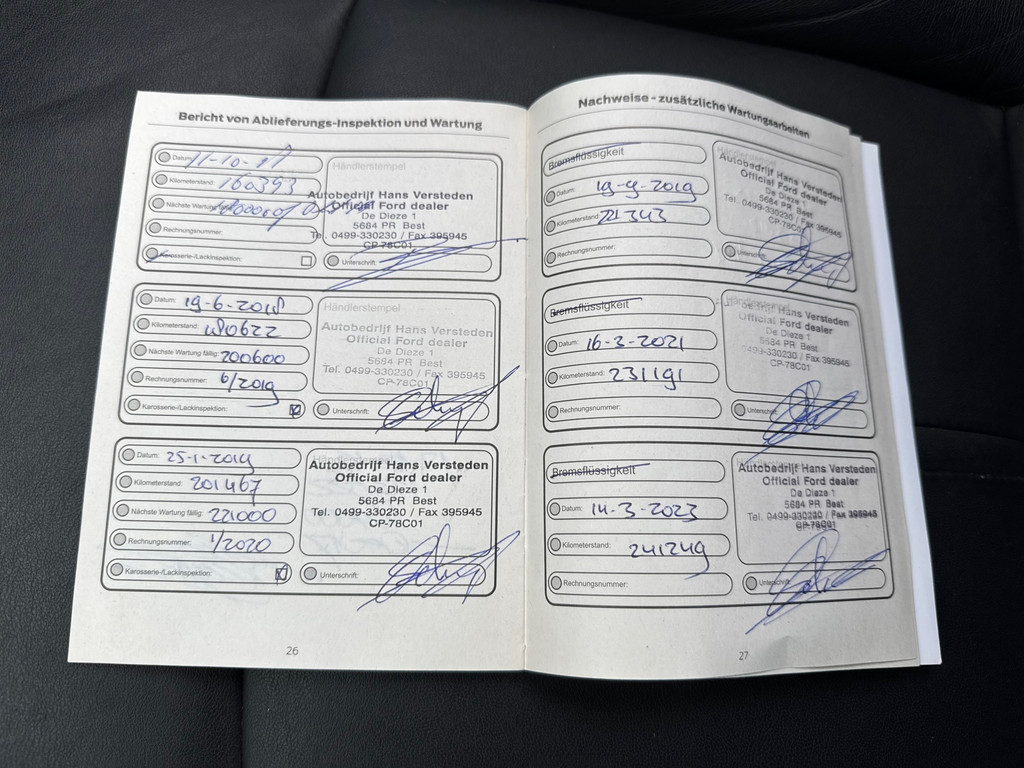 Bericht von Ablieferungs-Inspektion und Wartung
Datum: 11-10-
Händlerstempel
Kilometerstand: 160393
Nächste Wartung
Rechnungsnummer:
Karosserie-/Lackinspektion:
Autobedrijf Hans Versteden
Official Ford dealer
De Dieze 1
5684 PR Best
Tel. 0499-330230 / Fax 395945
CP-78C01
Unterschrift:
Datum: 19-6-2018
Händlerstempel
Kilometerstand: 180622
Nächste Wartung fällig: 200600
Rechnungsnummer: 6/2019
Karosserie-/Lackinspektion:
Autobedrijf Hans Versteden
Official Ford dealer
De Dieze 1
5684 PR Best
Tel. 0499-330230 / Fax 395945
CP-78C01
Unterschrift:
Datum: 25-1-2019
Händlerstempel
Kilometerstand: 201467
Nächste Wartung fällig: 221000
Rechnungsnummer: 1/2020
Karosserie-/Lackinspektion:
Autobedrijf Hans Versteden
Official Ford dealer
De Dieze 1
5684 PR Best
Tel. 0499-330230 / Fax 395945
CP-78C01
Unterschrift:
26
Nachweise - zusätzliche Wartungsarbeiten
Bremsflüssigkeit
Händlerstempel
Datum: 19-9-2019
Kilometerstand:
Rechnungsnummer:
Autobedrijf Hans Versteden
Official Ford dealer
De Dieze 1
5684 PR Best
Tel. 0499-330230 / Fax 395945
CP-78C01
Unterschrift:
Bremsflüssigkeit
Händlerstempel
Datum: 16-3-2021
Kilometerstand: 231191
Rechnungsnummer:
Autobedrijf Hans Versteden
Official Ford dealer
De Dieze 1
5684 PR Best
0499-330230 / Fax 395945
CP-78C01
Unterschrift:
Bremsflüssigkeit
Datum: 14-3-2023
Kilometerstand: 241249
Rechnungsnummer:
Autobedrijf Hans Versteden
Official Ford dealer
De Dieze 1
5684 PR Best
Tel. 0499-330230 / Fax 395945
CP-78C01
Unterschrift:
27